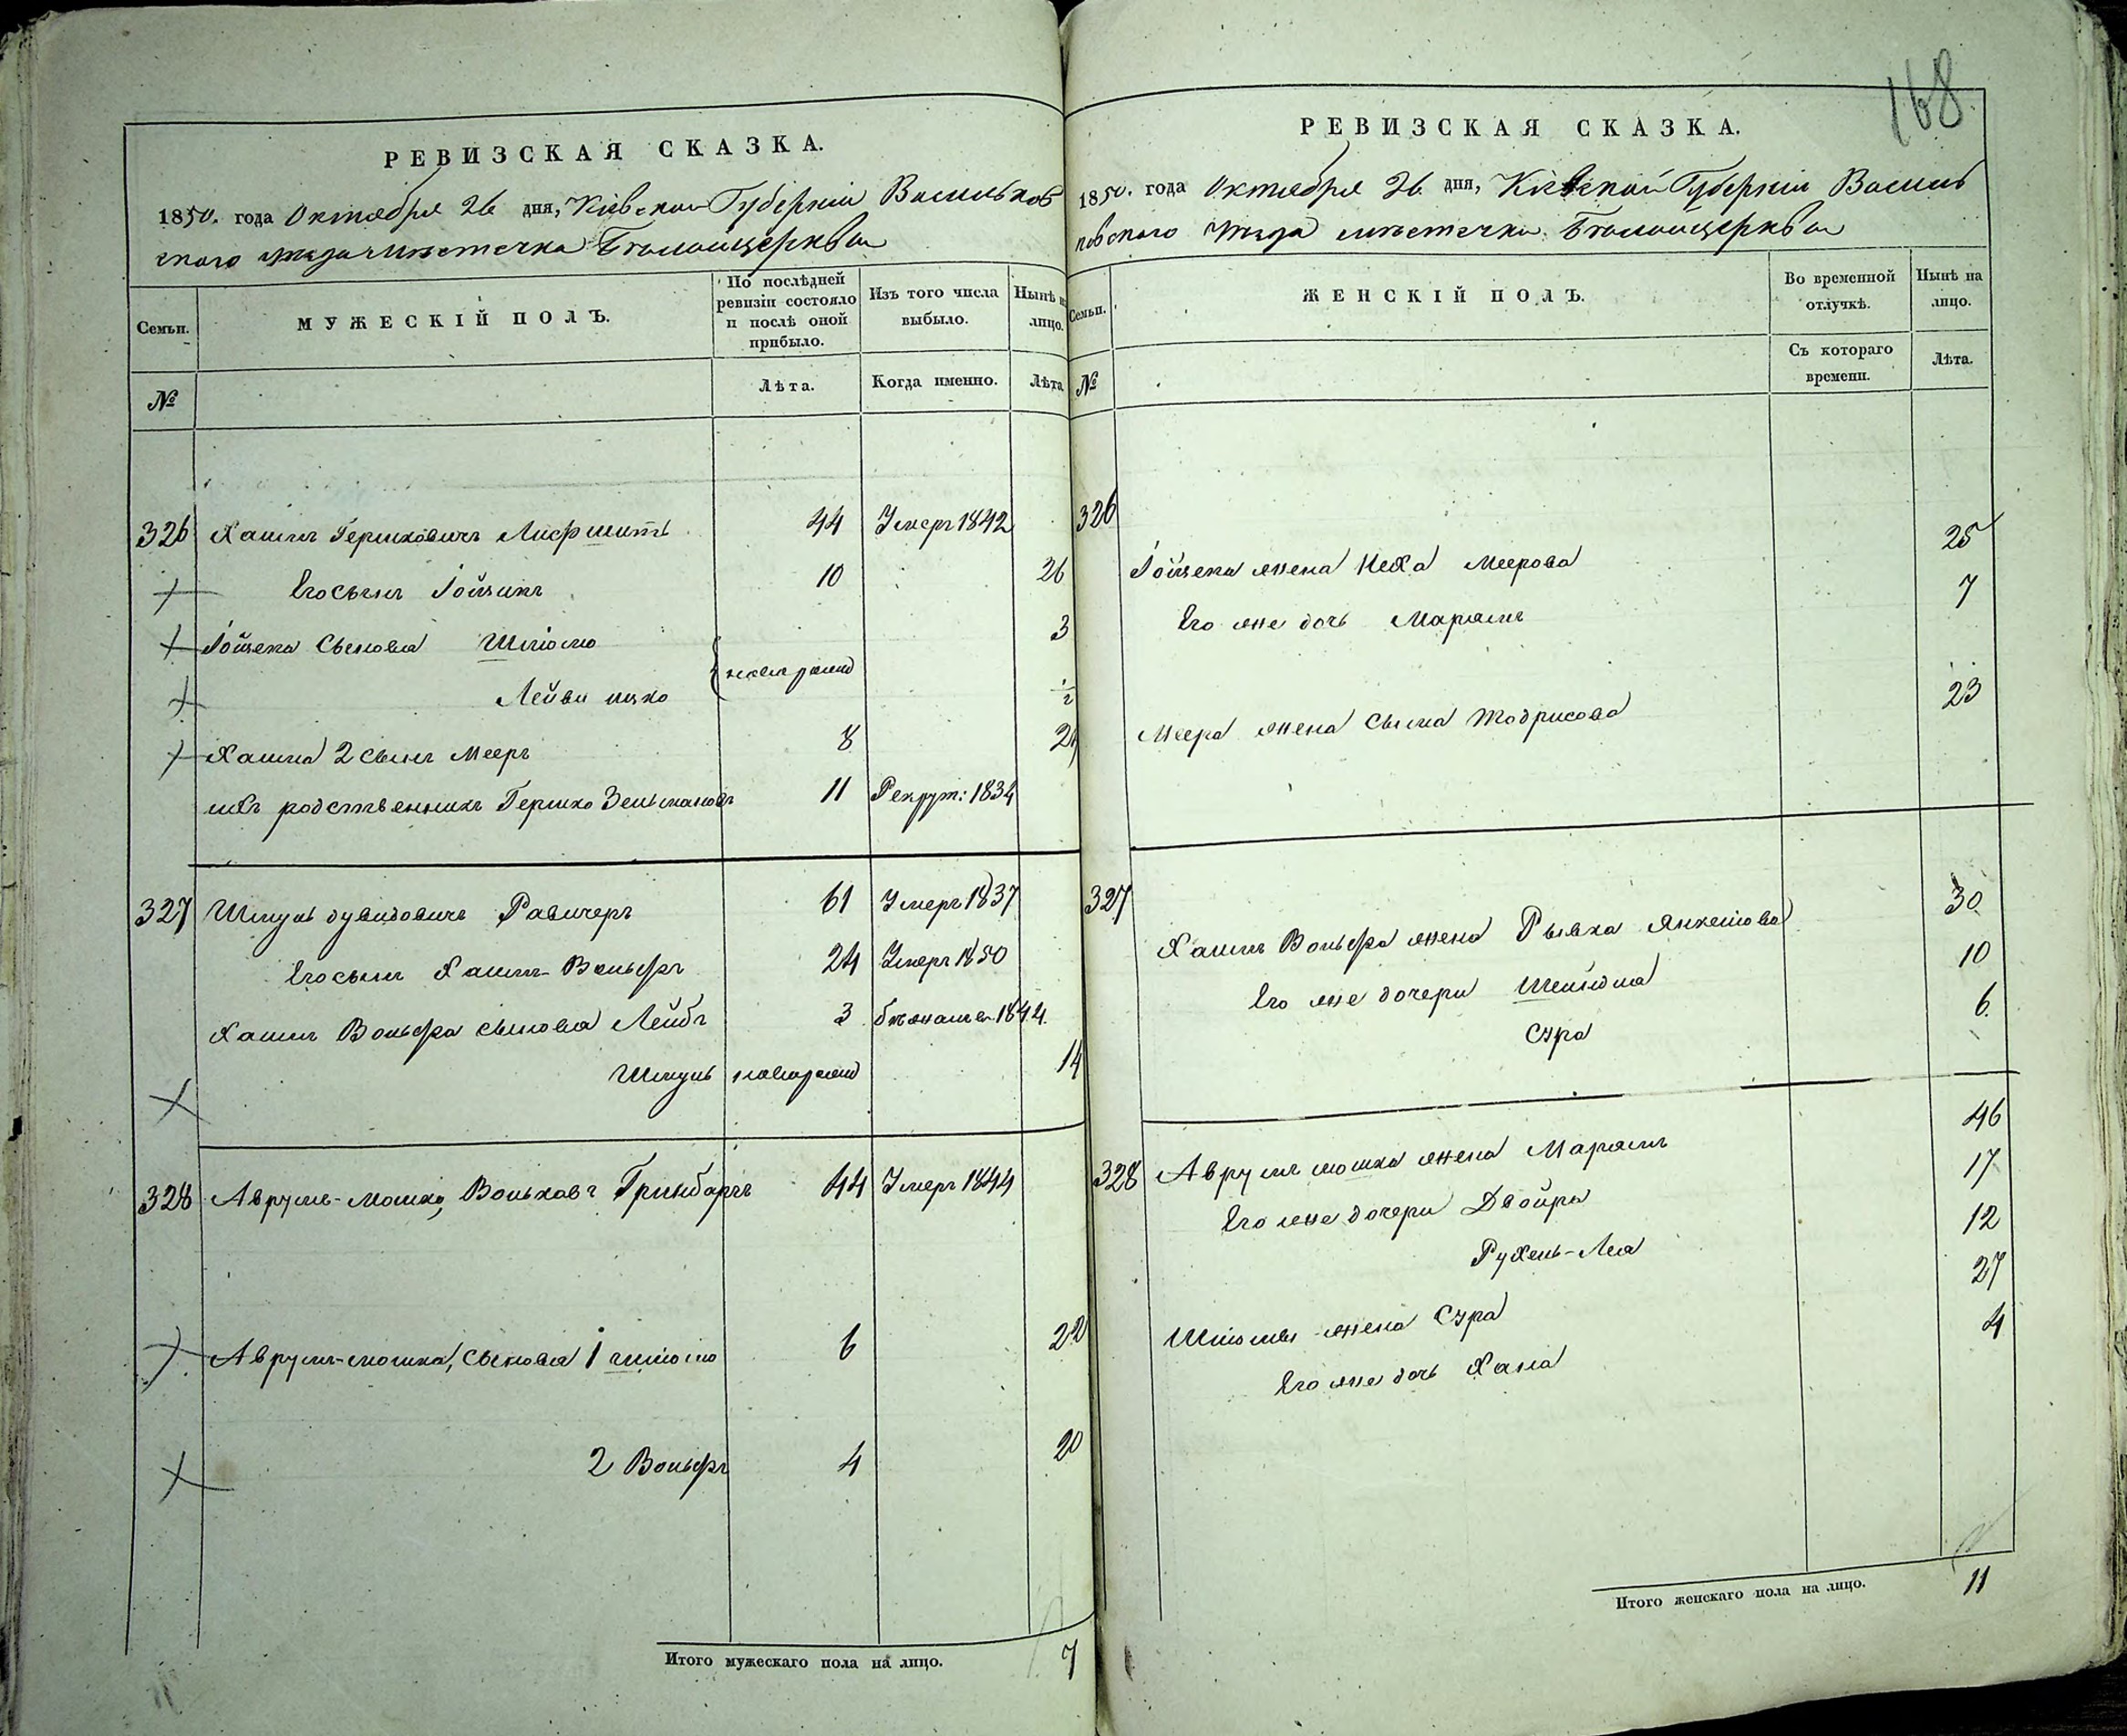 168
РЕВИЗСКАЯ СКАЗКА.
1850. года Октября 26 дня, Кіевской Губерніи Васильков
скаго уезда местечка Белойцеркви
Семьи.
МУЖЕСКІЙ ПОЛЪ.
По послѣдней ревизіи состояло и послѣ оной прибыло.
Изъ того числа выбыло.
Нынѣ на лицо.
№
Лѣта.
Когда именно.
Лѣта
326 Хаимъ Гершковичъ Лифшитъ 44 Умеръ 1842
Его сынъ Іойцикъ 10 26
Іойцека сыновья Шлiомо 3
новорожд
Лейви ицко ½
Хаима 2 сынъ Мееръ 8 24
ихъ родственникъ Гершко Зельмановъ 11 Рекрут: 1834
327 Шмуль дувидовичъ Равичеръ 61 Умеръ 1837
Его сынъ Хаимъ-Вольфъ 24 Умеръ 1850
Хаимъ Вольфа сыновья Лейбъ 3 бежалъ 1844.
Шмуль новорожд 14
328 Аврумъ-мошко, Вольковъ Гринбаргъ 44 Умеръ 1844
Аврумъ-мошка, сыновья 1 шлiомо 6 22
2 Вольфъ 4 20
Итого мужескаго пола на лицо. 7
РЕВИЗСКАЯ СКАЗКА.
1850. года Октября 26 дня, Кіевской Губерніи Василь
ковскаго уезда местечка Белойцеркви
Семьи.
ЖЕНСКІЙ ПОЛЪ.
Во временной отлучкѣ.
Нынѣ на лицо.
№
Съ котораго времени.
Лѣта.
326
Іойцека жена Неха Меерова 25
Его же дочь Марямъ 7
Меера жена Сыма Тодрисова 23
327
Хаимъ Вольфа жена Рывка Янкелiова 30
Его же дочери Шейндля 10
Сура 6
328 Аврумъ мошка жена Марямъ 46
Его же дочери Двойра 17
Рухель-Лея 12
Шлiомы жена Сура 27
Его же дочь Хана 4
Итого женскаго пола на лицо. 11